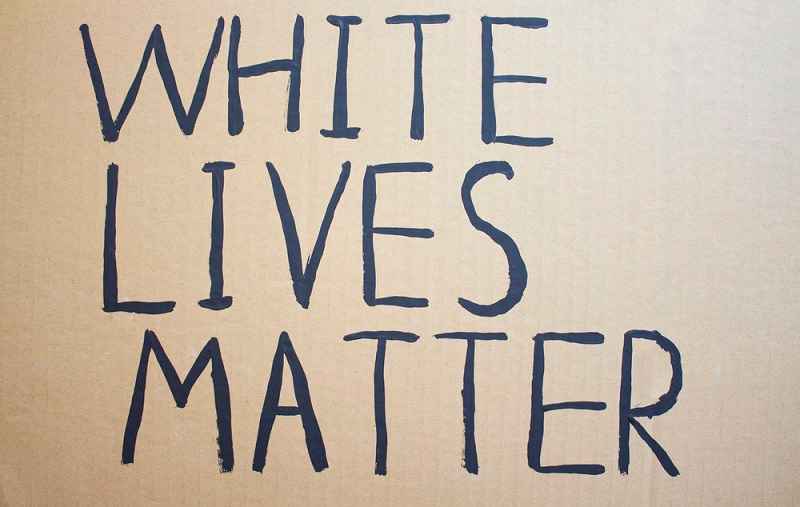 WHITE
LIVES
MATTER